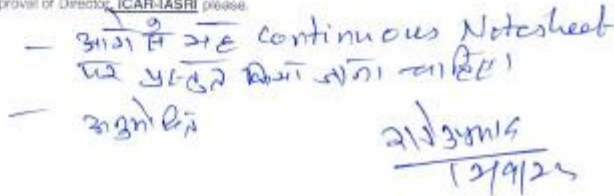 proval of Director, ICAR-IASRI please.
— आगे से यह Continuous Notesheet
पर प्रस्तुत किया जाना चाहिए।
— अनुमोदित
12/9/2